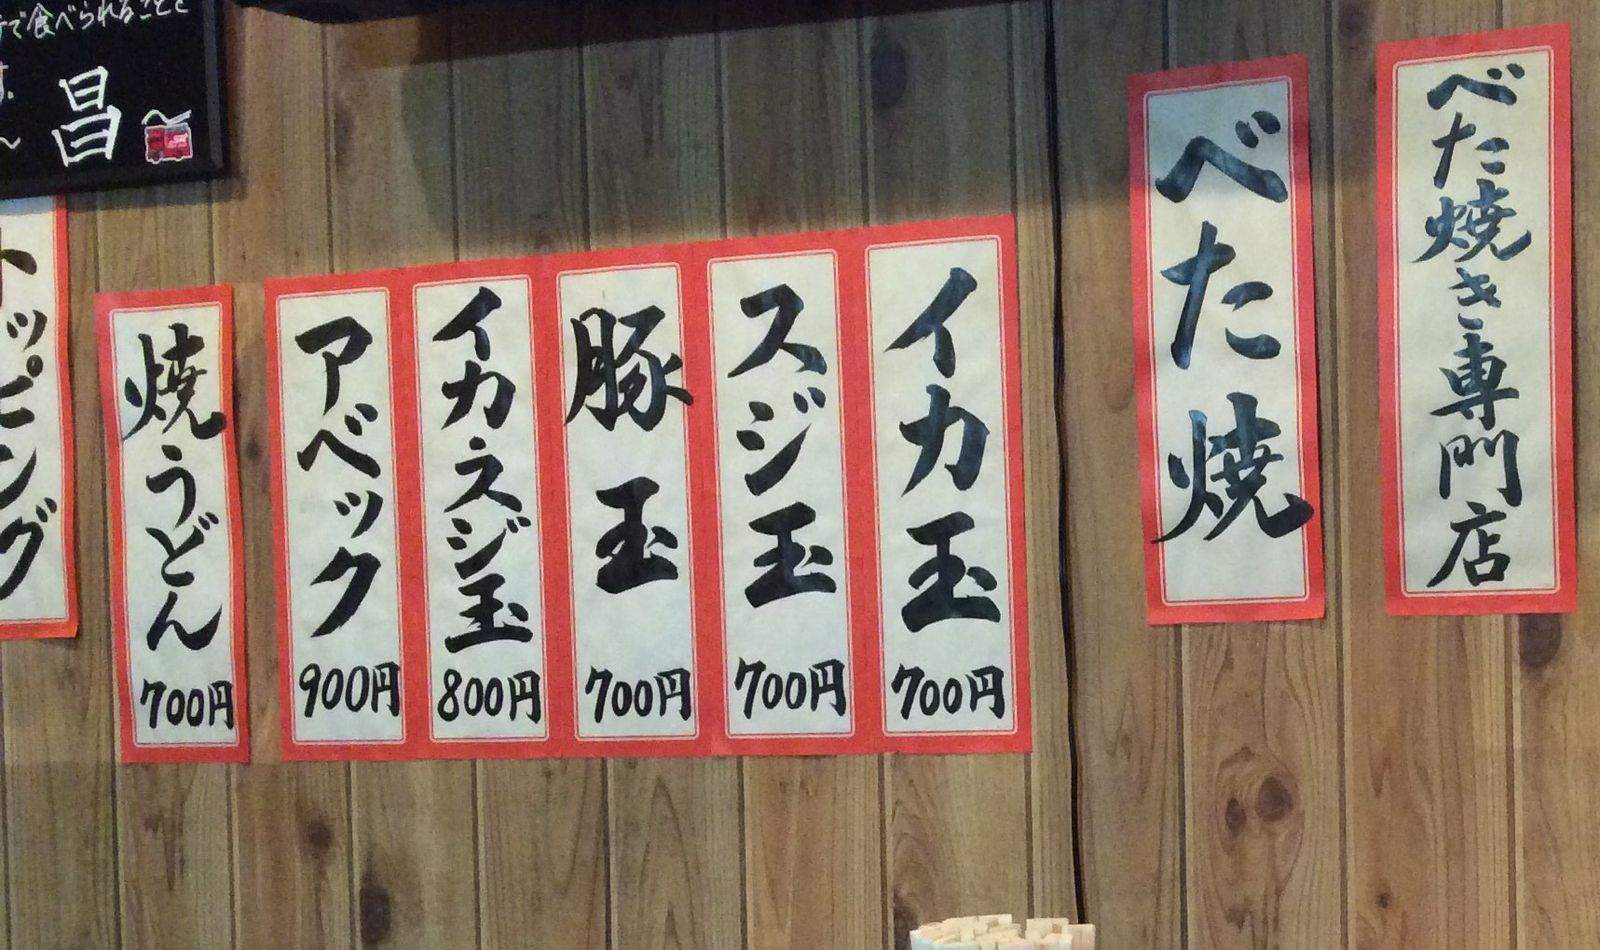 べた焼き専門店
べた焼
イカ玉
700円
スジ玉
700円
豚玉
700円
イカスジ玉
800円
アベック
900円
焼うどん
700円
トッピング
で食べられることを
昌